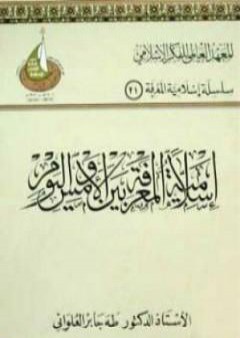 المعهد العالمي للفكر الإسلامي
سلسلة إسلامية المعرفة (٢١)
إسلامية المعرفة بين الأمس واليوم
الأستاذ الدكتور طه جابر العلواني